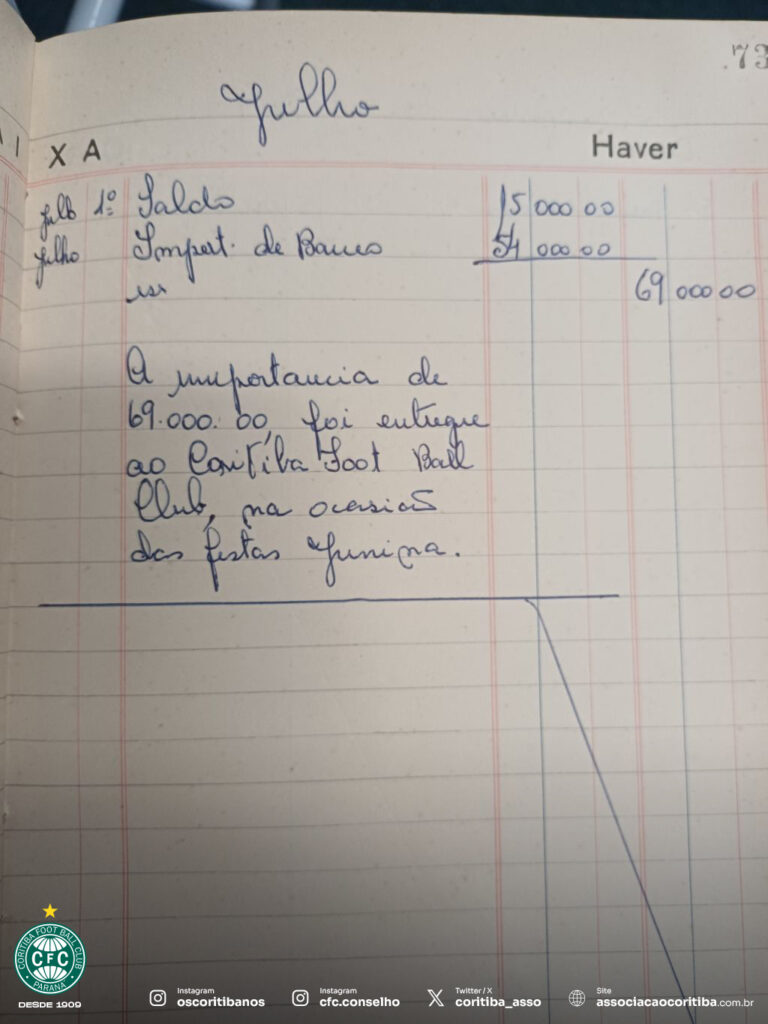 73
Julho
X A
Haver
julh 1º Saldo 15 000 00
julho Import. de Banco 54 000 00
69 000 00
A importancia de
69.000.00, foi entregue
ao Coritiba Foot Ball
Club, na ocasião
das festas Junina.
CORITIBA FOOT BALL CLUB
CFC
PARANÁ
DESDE 1909
Instagram
oscoritibanos
Instagram
cfc.conselho
Twitter / X
coritiba_asso
Site
associacaocoritiba.com.br